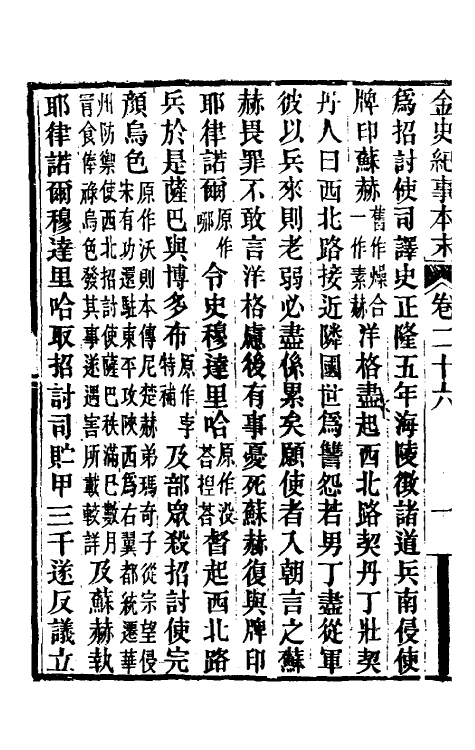 金史紀事本末 卷二十六 一
爲招討使司譯史正隆五年海陵徵諸道兵南侵使
牌印蘇赫舊作燥合一作素赫洋格盡起西北路契丹丁壯契
丹人曰西北路接近隣國世爲讐怨若男丁盡從軍
彼以兵來則老弱必盡係累矣願使者入朝言之蘇
赫畏罪不敢言洋格慮後有事憂死蘇赫復與牌印
耶律諾爾原作哪令史穆達里哈原作沒荅揑荅督起西北路
兵於是薩巴與博多布原作孛特補及部眾殺招討使完
顏烏色原作沃則本傳尼楚赫弟瑪奇子從宗望侵宋有功還駐東平攻陝西爲右翼都統遷華州防禦使西北招討使薩巴秩滿已數月冐食俸祿烏色發其事遂遇害所載較詳及蘇赫執
耶律諾爾穆達里哈取招討司貯甲三千遂反議立